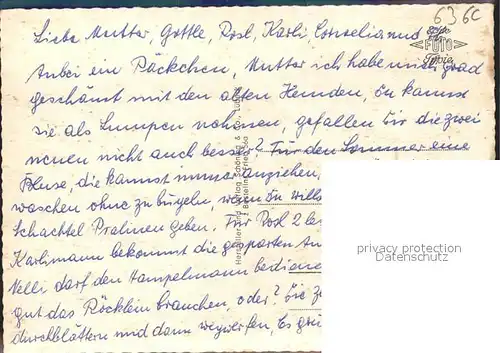 6 3 6 C
Liebe Mutter, Gottle, Rosl, Karli Cornelia und
echte FOTO
Anbei ein Päckchen, Mutter ich habe mich grad
geschämt mit den alten Hemden, Du kannst
sie als Lumpen nehmen, gefallen Dir die zwei
neuen nicht auch besser? Für den Sommer eine
Bluse, die kannst immer anziehen,
waschen ohne zu bügeln, wenn Du willst
Schachtel Pralinen geben. Für Rosl 2
Karlimann bekommt die gesparten
Nelli darf den Hampelmann bediene
gut das Röcklein brauchen, oder? Die
durchblättern und dann wegwerfen, Es
Herstellung und Verlag Schöning &
privacy protection
Datenschutz